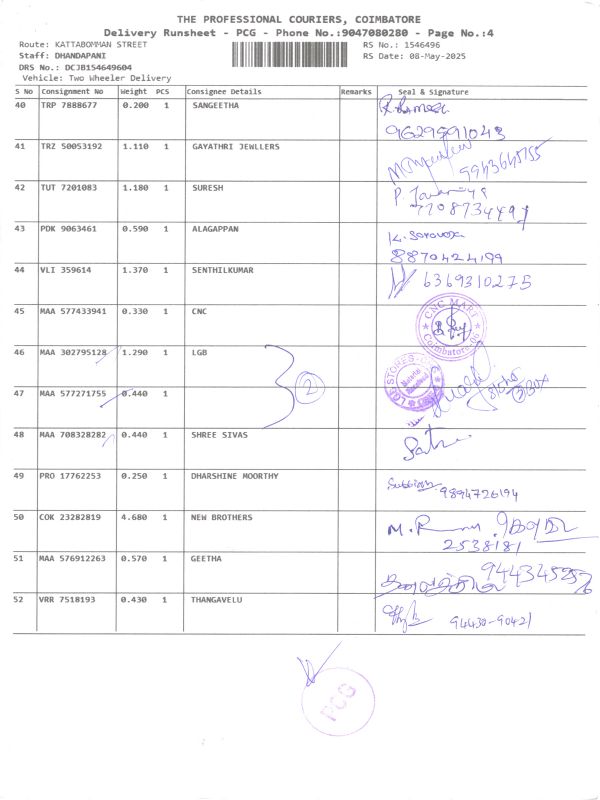 THE PROFESSIONAL COURIERS, COIMBATORE
Delivery Runsheet - PCG - Phone No.:9047080280 - Page No.:4
Route: KATTABOMMAN STREET RS No.: 1546496
Staff: DHANDAPANI RS Date: 08-May-2025
DRS No.: DCJB154649604
Vehicle: Two Wheeler Delivery
S No Consignment No Weight PCS Consignee Details Remarks Seal & Signature
40 TRP 7888677 0.200 1 SANGEETHA
9629591043
41 TRZ 50053192 1.110 1 GAYATHRI JEWLLERS
9943645755
42 TUT 7201083 1.180 1 SURESH
7708734491
43 PDK 9063461 0.590 1 ALAGAPPAN
8870424199
44 VLI 359614 1.370 1 SENTHILKUMAR 6369310275
45 MAA 577433941 0.330 1 CNC CNC MART Coimbatore
46 MAA 302795128 1.290 1 LGB LGB STORES
2
47 MAA 577271755 0.440 1
48 MAA 708328282 0.440 1 SHREE SIVAS
49 PRO 17762253 0.250 1 DHARSHINE MOORTHY 9894726194
50 COK 23282819 4.680 1 NEW BROTHERS
2538181
51 MAA 576912263 0.570 1 GEETHA
52 VRR 7518193 0.430 1 THANGAVELU 94430-90421
PCG